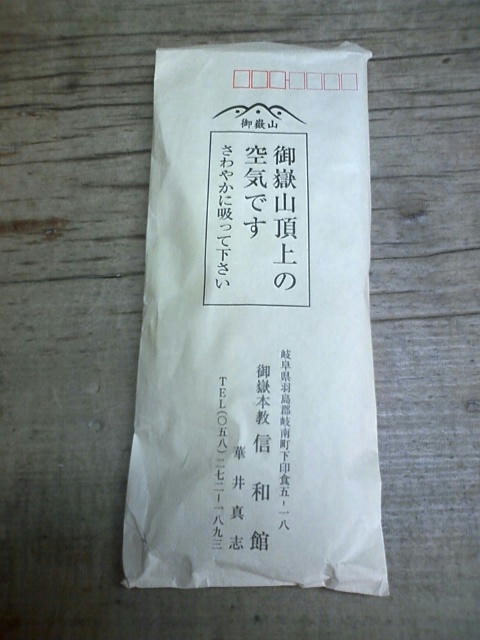 御嶽山
御嶽山頂上の
空気です
さわやかに吸って下さい
岐阜県羽島郡岐南町下印食五ー一八
御嶽本教 信和館
華井真志
TEL(〇五八)二七二ー一八九三